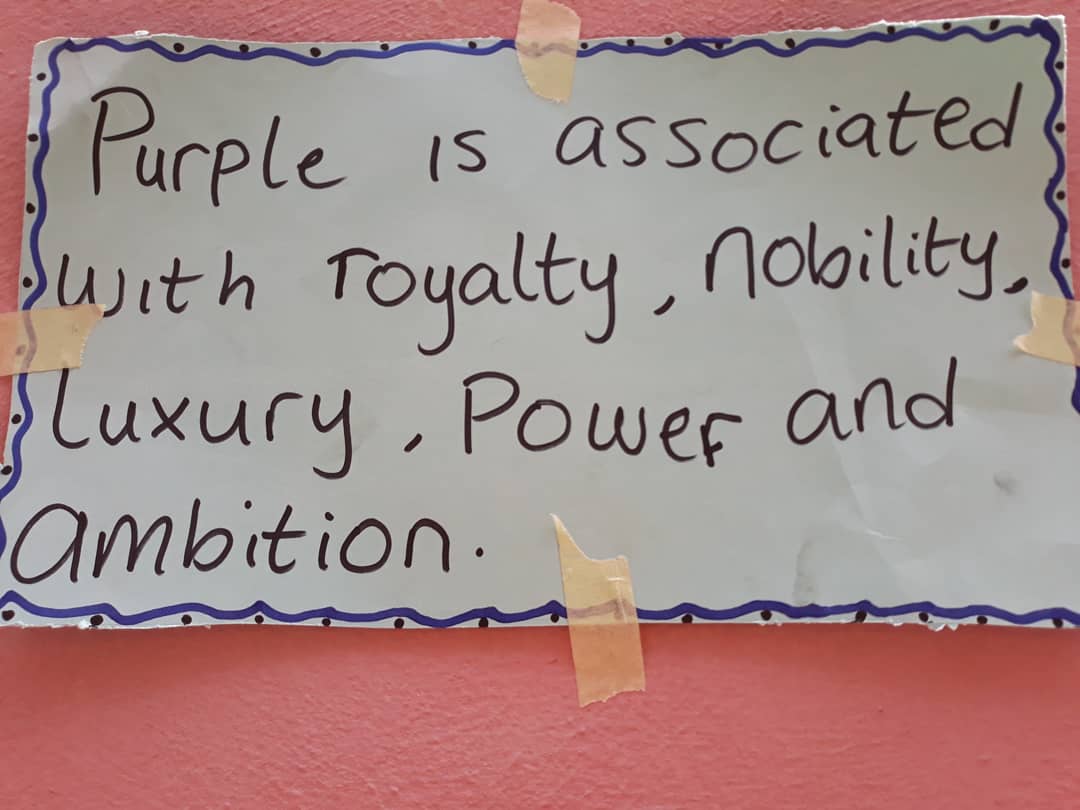 Purple is associated
with royalty, nobility,
Luxury, Power and
ambition.